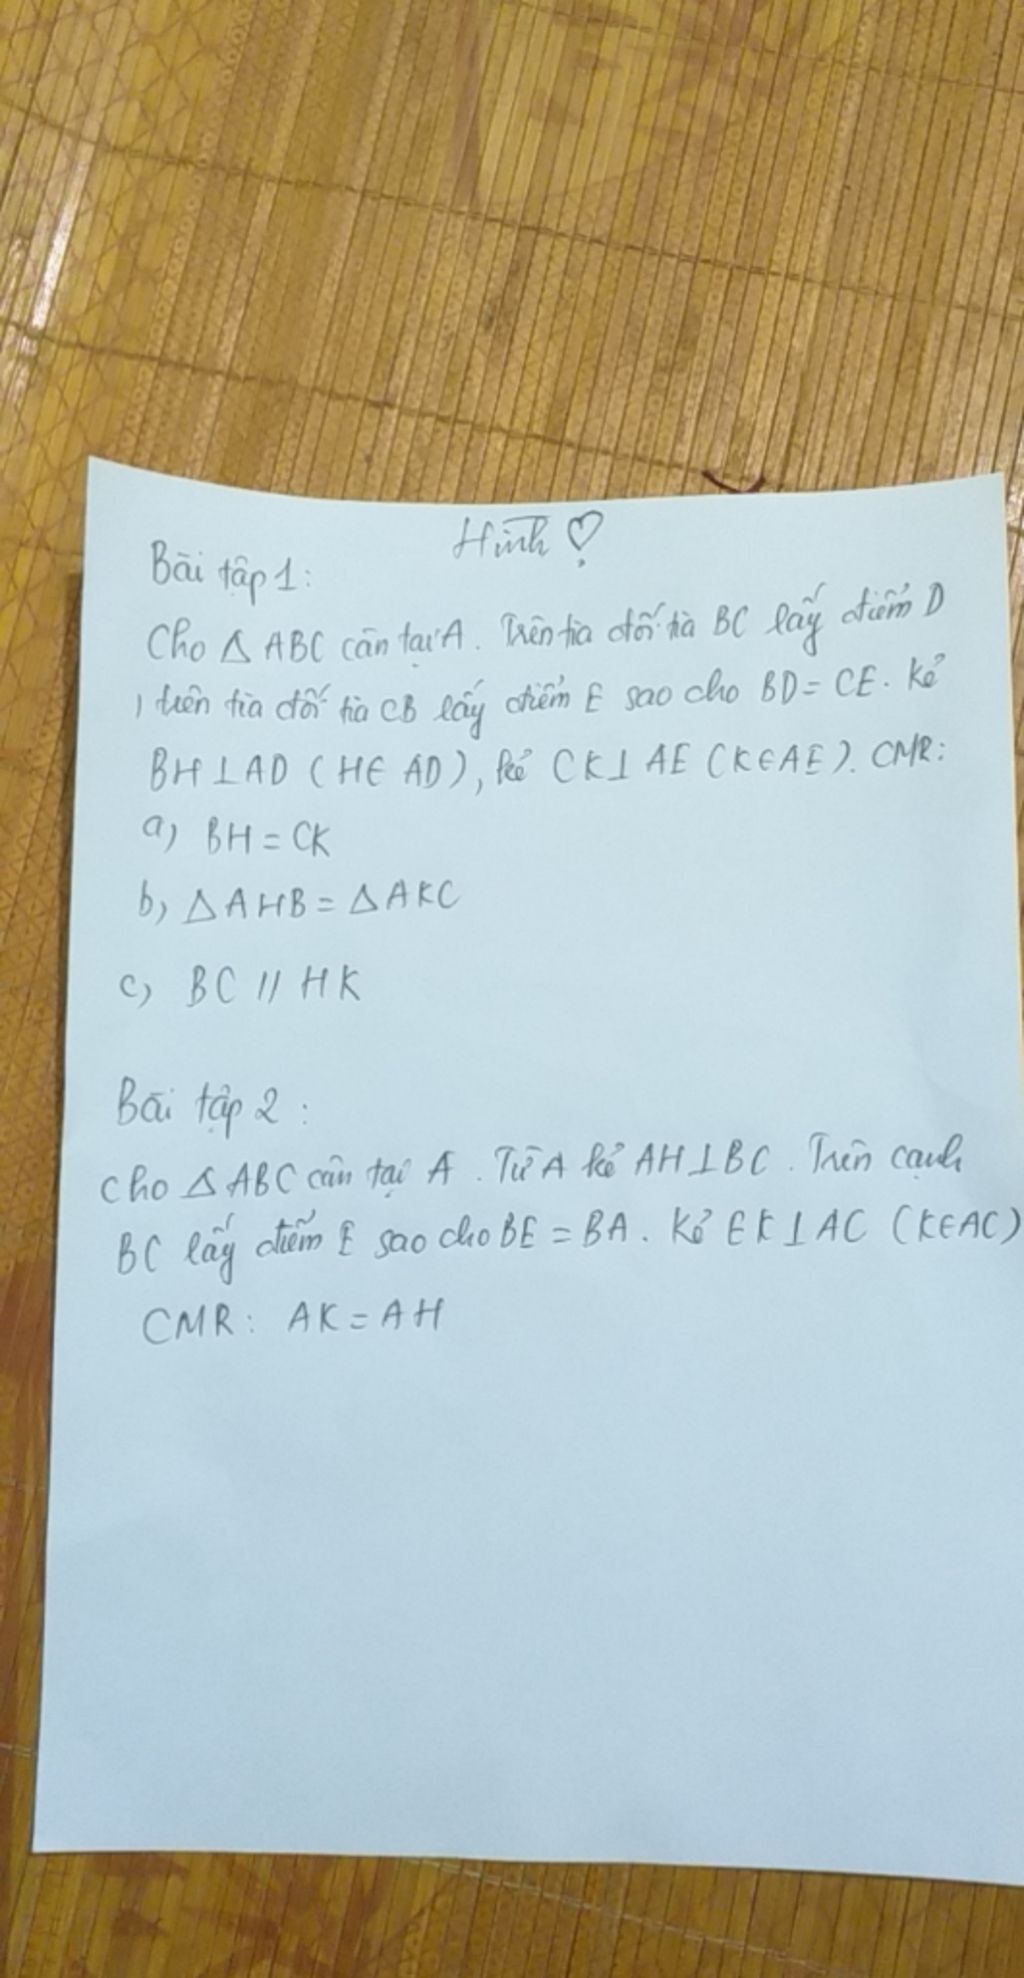 Hình ♡
Bài tập 1:
Cho △ ABC cân tại A. Trên tia đối tia BC lấy điểm D
, trên tia đối tia CB lấy điểm E sao cho BD = CE. Kẻ
BH ⊥ AD (H ∈ AD), kẻ CK ⊥ AE (K ∈ AE). CMR:
a) BH = CK
b) △ AHB = △ AKC
c) BC // HK
Bài tập 2:
cho △ ABC cân tại A. Từ A kẻ AH ⊥ BC. Trên cạnh
BC lấy điểm E sao cho BE = BA. Kẻ EK ⊥ AC (K ∈ AC)
CMR: AK = AH